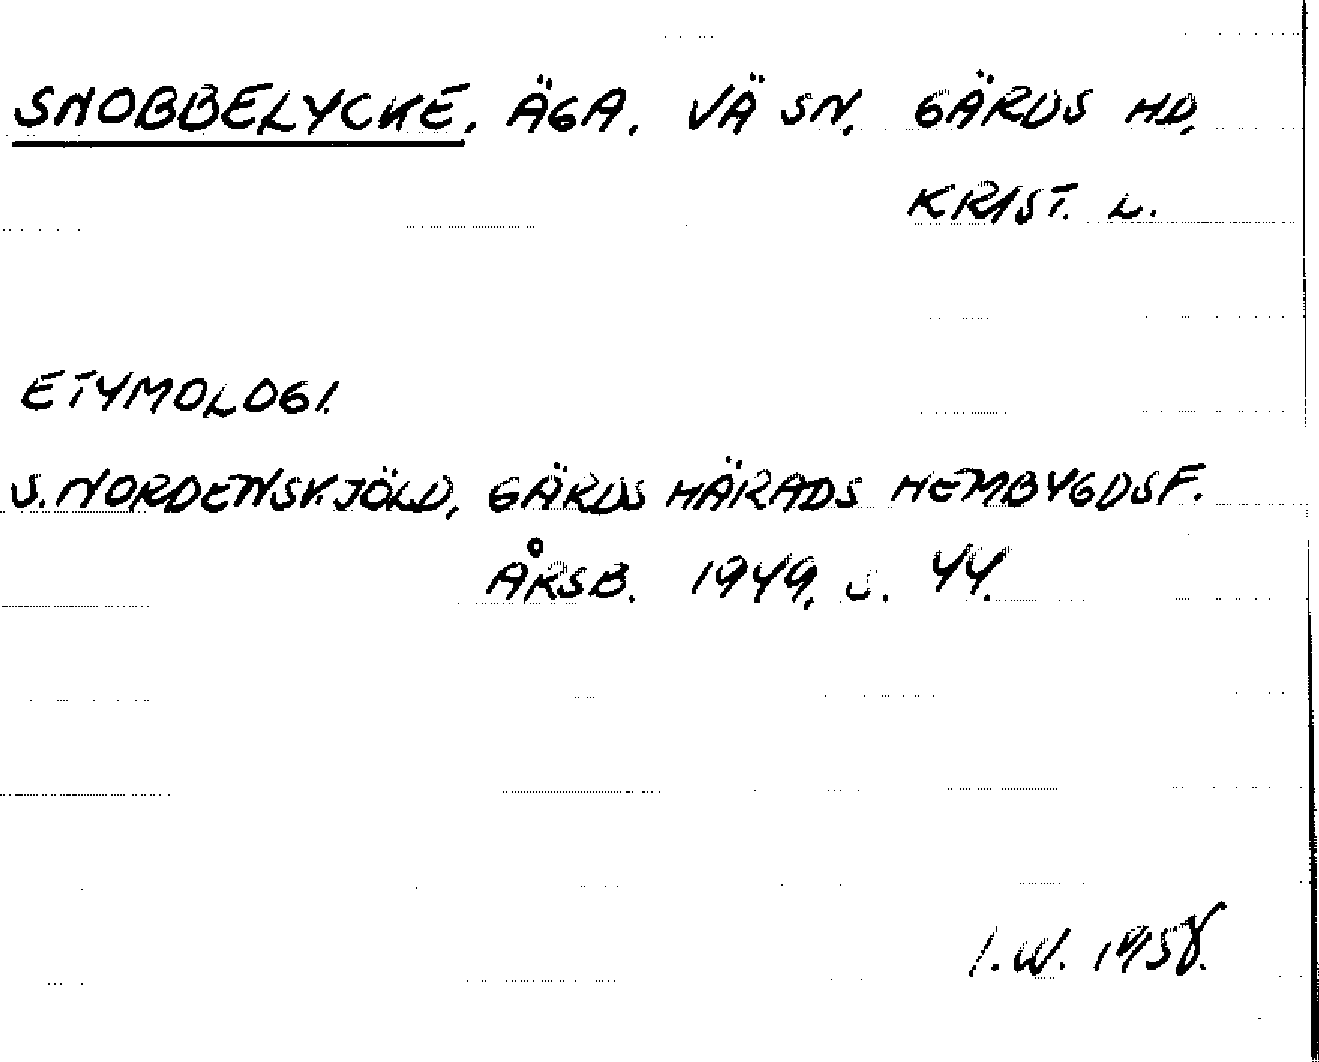 SNOBBELYCKE. ÄGA. VÄ SN. GÄRDS HD.
KRIST. L.
ETYMOLOGI.
S. NORDENSKJÖLD, GÄRDS HÄRADS HEMBYGDSF.
ÅRSB. 1949, S. 44.
I.W. 1958.